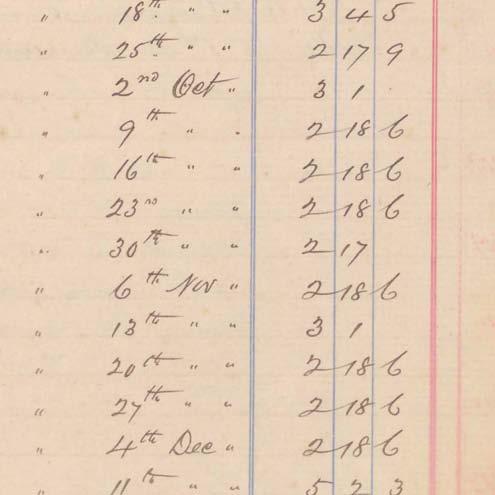 " 18th " " 3 4 5
" 25th " " 2 17 9
" 2nd Oct " 3 1
" 9th " " 2 18 6
" 16th " " 2 18 6
" 23rd " " 2 18 6
" 30th " " 2 17
" 6th Nov " 2 18 6
" 13th " " 3 1
" 20th " " 2 18 6
" 27th " " 2 18 6
" 4th Dec " 2 18 6
" 11th " " 5 2 3